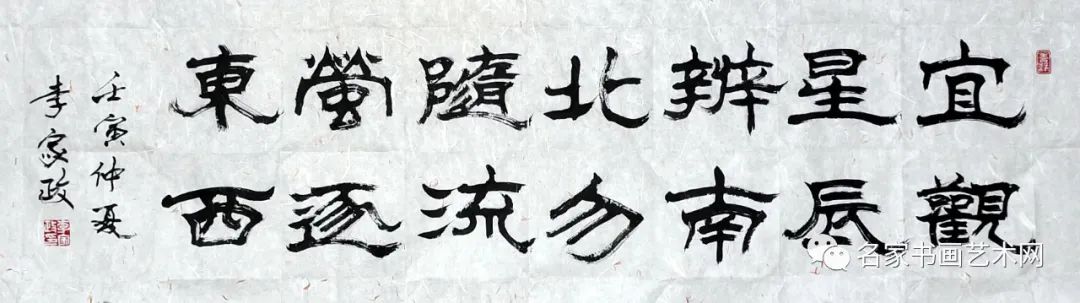 宜觀
星辰
辨南
北勿
隨流
螢逐
東西
壬寅仲夏
李家政
名家书画艺术网